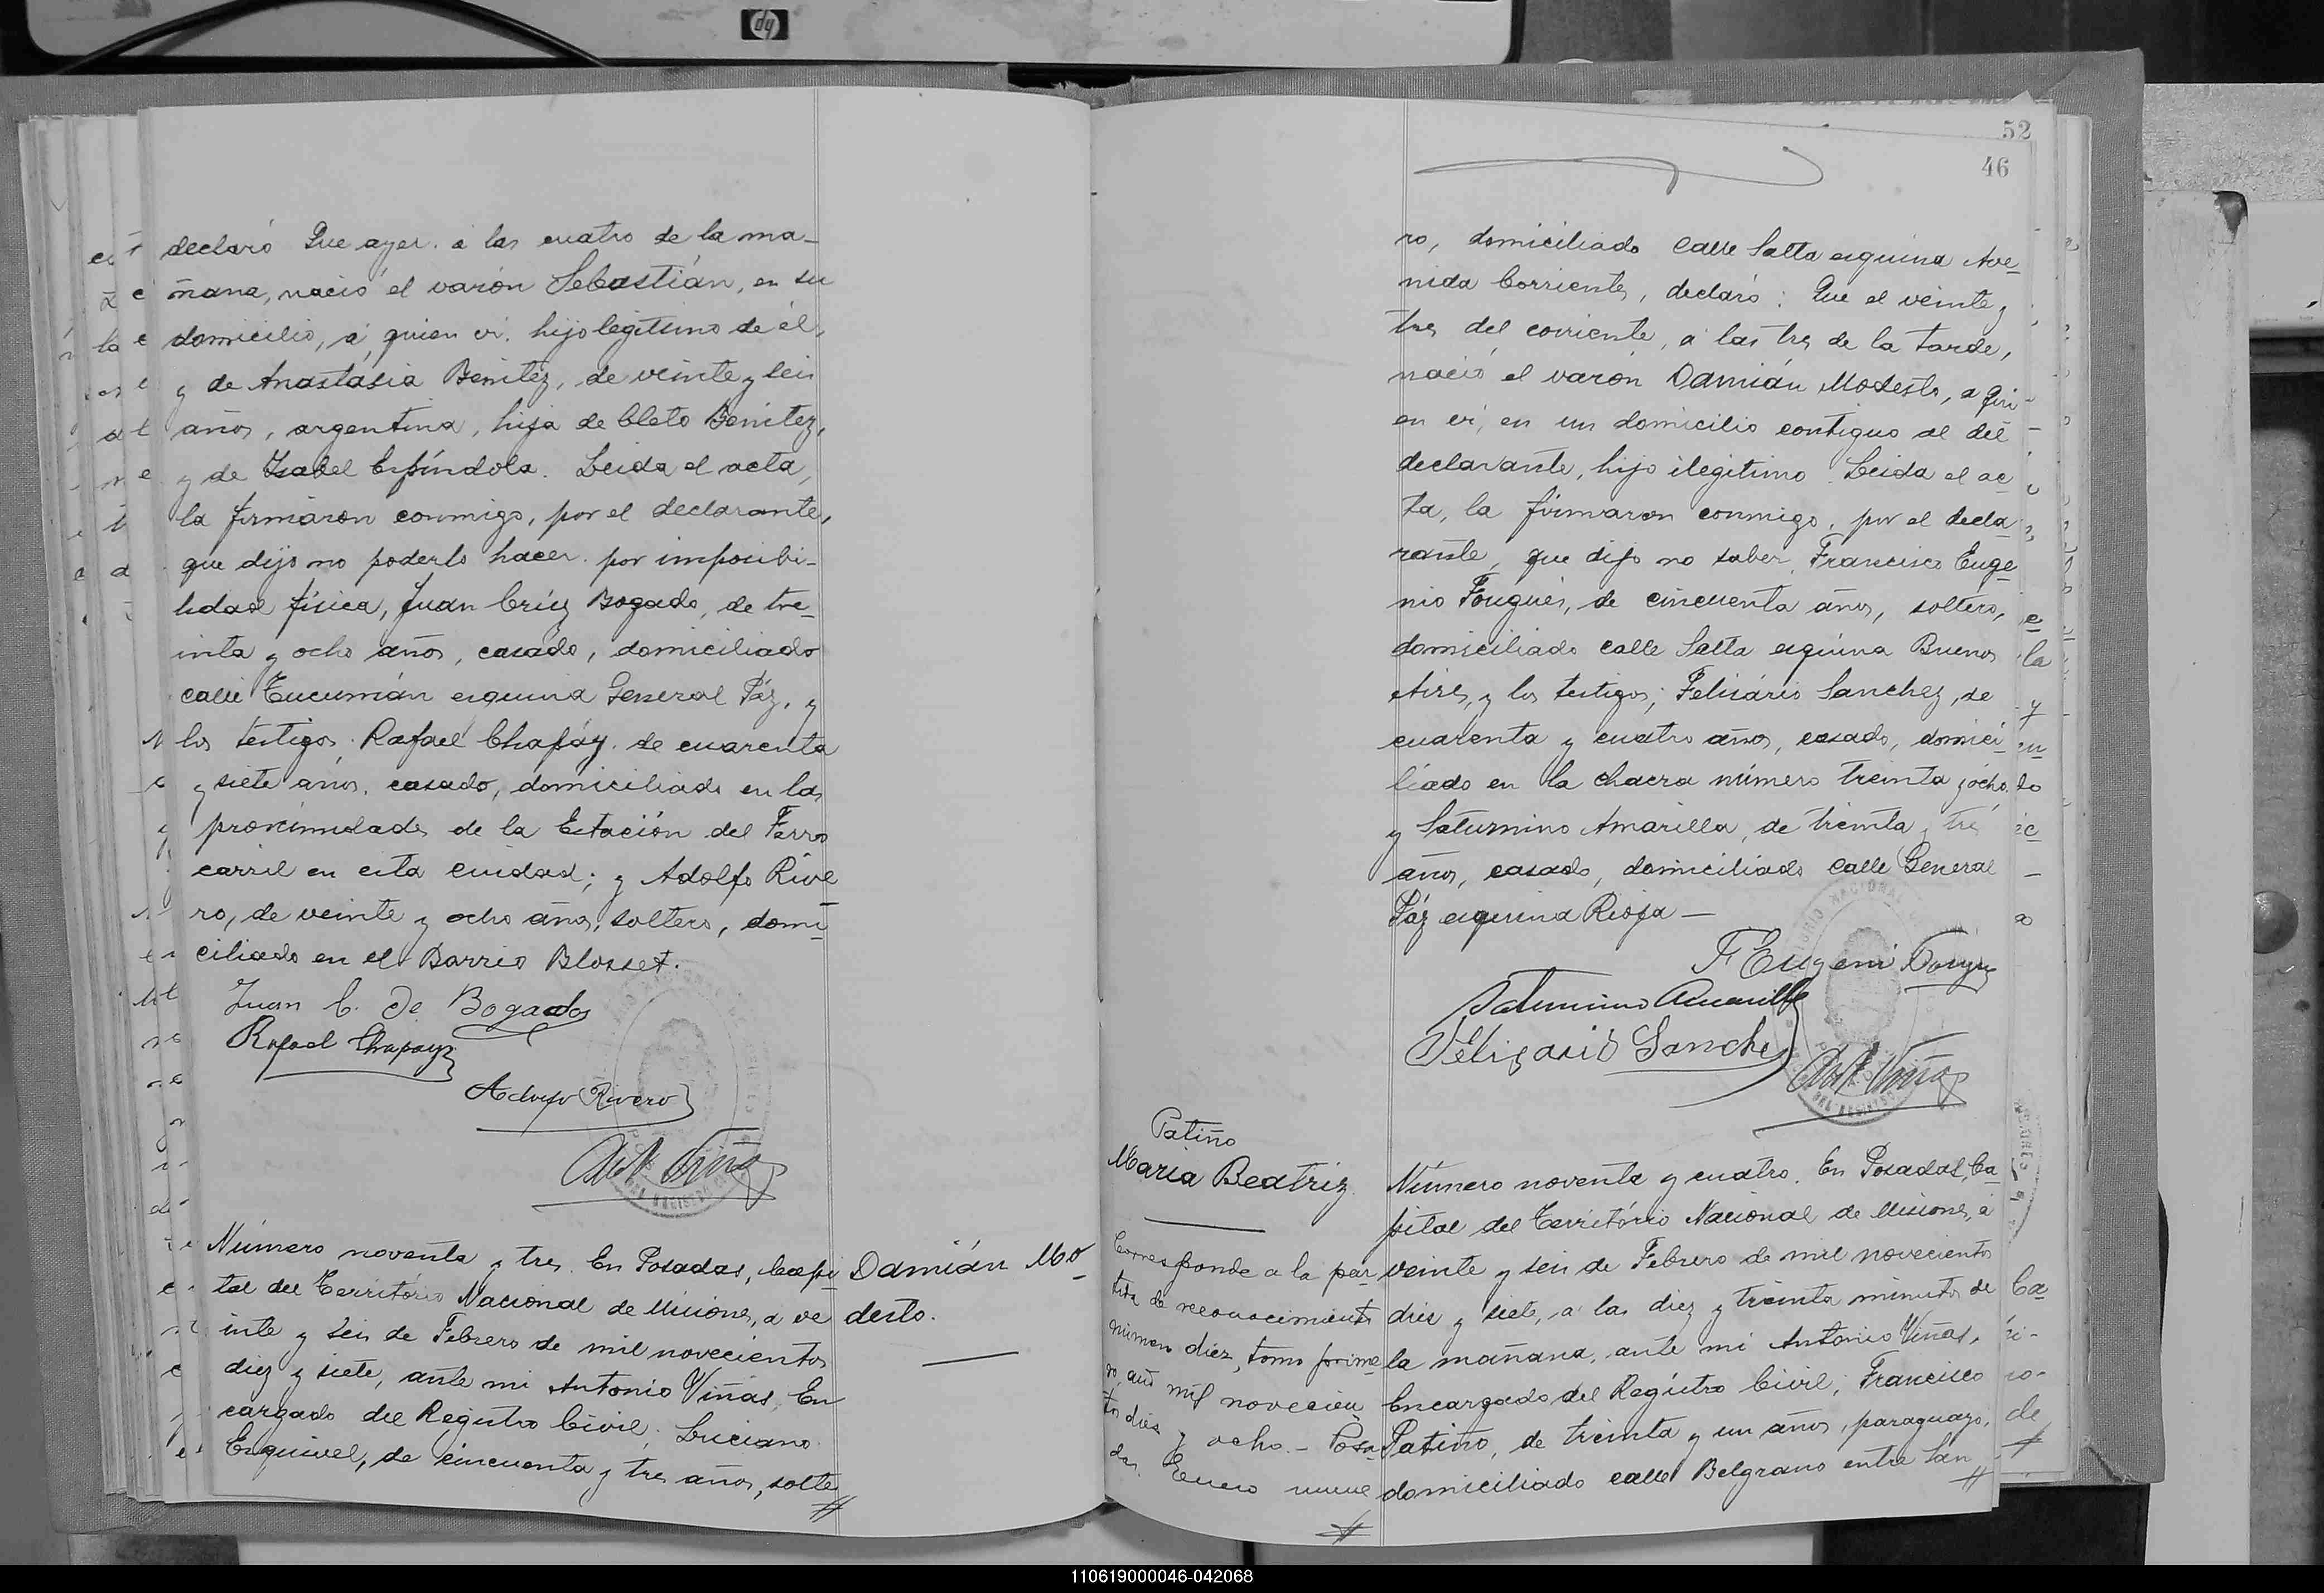 hp
declaró Que ayer a las cuatro de la ma-
ñana, nació el varón Sebastián, en su
domicilio, á quien vi, hijo legitimo de él,
y de Anastásia Benitez, de veinte y seis
años, argentina, hija de Cleto Benitez,
y de Isabel Espíndola. Leida el acta,
la firmaron conmigo, por el declarante,
que dijo no poderlo hacer por imposibi-
lidad física, Juan Crúz Bogado, de tre-
inta y ocho años, casado, domiciliado
calle Tucumán esquina General Páz, y
los testigos Rafael Chapáy de cuarenta
y siete años, casado, domiciliado en las
proximidades de la Estación del Ferro
carril en esta ciudad; y Adolfo Rive
ro, de veinte y ocho años, soltero, domi-
ciliado en el Barrio Blosset.
Juan C. de Bogado
Rafael Chapay
Adolfo Rivero
Número noventa y tres. En Posadas, Capi-
tal del Território Nacional de Misiones, a ve
inte y seis de Febrero de mil novecientos
diez y siete, ante mi Antonio Viñas, En
cargado del Registro Civil, Luciano
Esquivel, de cincuenta y tres años, solte
Damián Mo-
desto.
52
46
ro, domiciliado calle Salta esquina Ave-
nida Corrientes, declaró: Que el veinte y
tres del corriente, a las tres de la tarde,
nació el varón Damián Modesto, a qui-
en vi, en un domicilio contiguo al del
declarante, hijo ilegitimo. Leida el ac-
ta, la firmaron conmigo, por el decla-
rante, que dijo no saber, Francisco Euge-
nio Fougués, de cincuenta años, soltero,
domiciliado calle Salta esquina Buenos
Aires, y los testigos; Felisário Sanchez, de
cuarenta y cuatro años, casado, domici-
liado en la chacra número treinta y ocho
y Saturnino Amarilla, de treinta y tres
años, casado, domiciliado calle General
Páz esquina Rioja —
F Eugeni
Saturnino Amarilla
Felisario Sanchez
Patiño
Maria Beatriz
Corresponde a la par-
tida de reconocimiento
número diez, tomo prime
ro, año mil novecien
tos diez y ocho. - Posa-
das. Enero nueve
Número noventa y cuatro. En Posadas, Ca-
pital del Território Nacional de Misiones, á
veinte y seis de Febrero de mil novecientos
diez y siete, a las diez y treinta minutos de
la mañana, ante mi Antonio Viñas,
Encargado del Registro Civil; Francisco
Patiño, de treinta y un años, paraguayo,
domiciliado calle Belgrano entre San
110619000046-042068